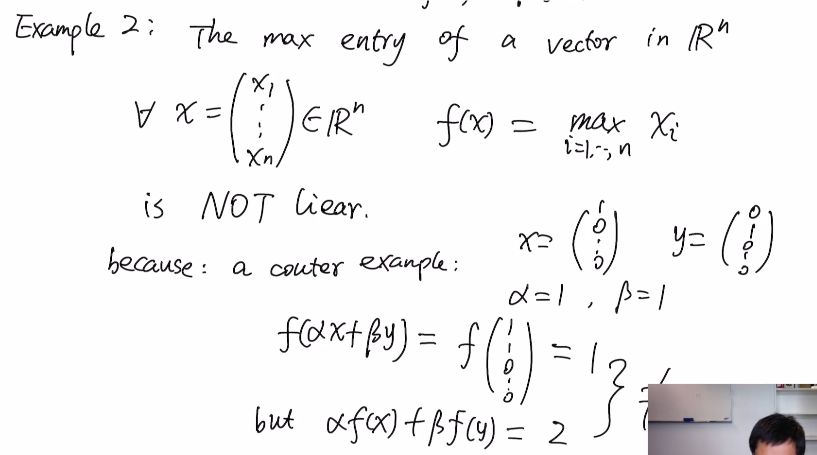 Example 2: The max entry of a vector in ℝⁿ
∀ x = (x₁ ⋮ xₙ) ∈ ℝⁿ f(x) = max_{i=1,⋯,n} xᵢ
is NOT liear.
because: a couter example: x = (1 0 ⋮ 0) y = (0 1 0 ⋮ 0)
α=1, β=1
f(αx+βy) = f(1 1 0 ⋮ 0) = 1 } ≠
but αf(x)+βf(y) = 2